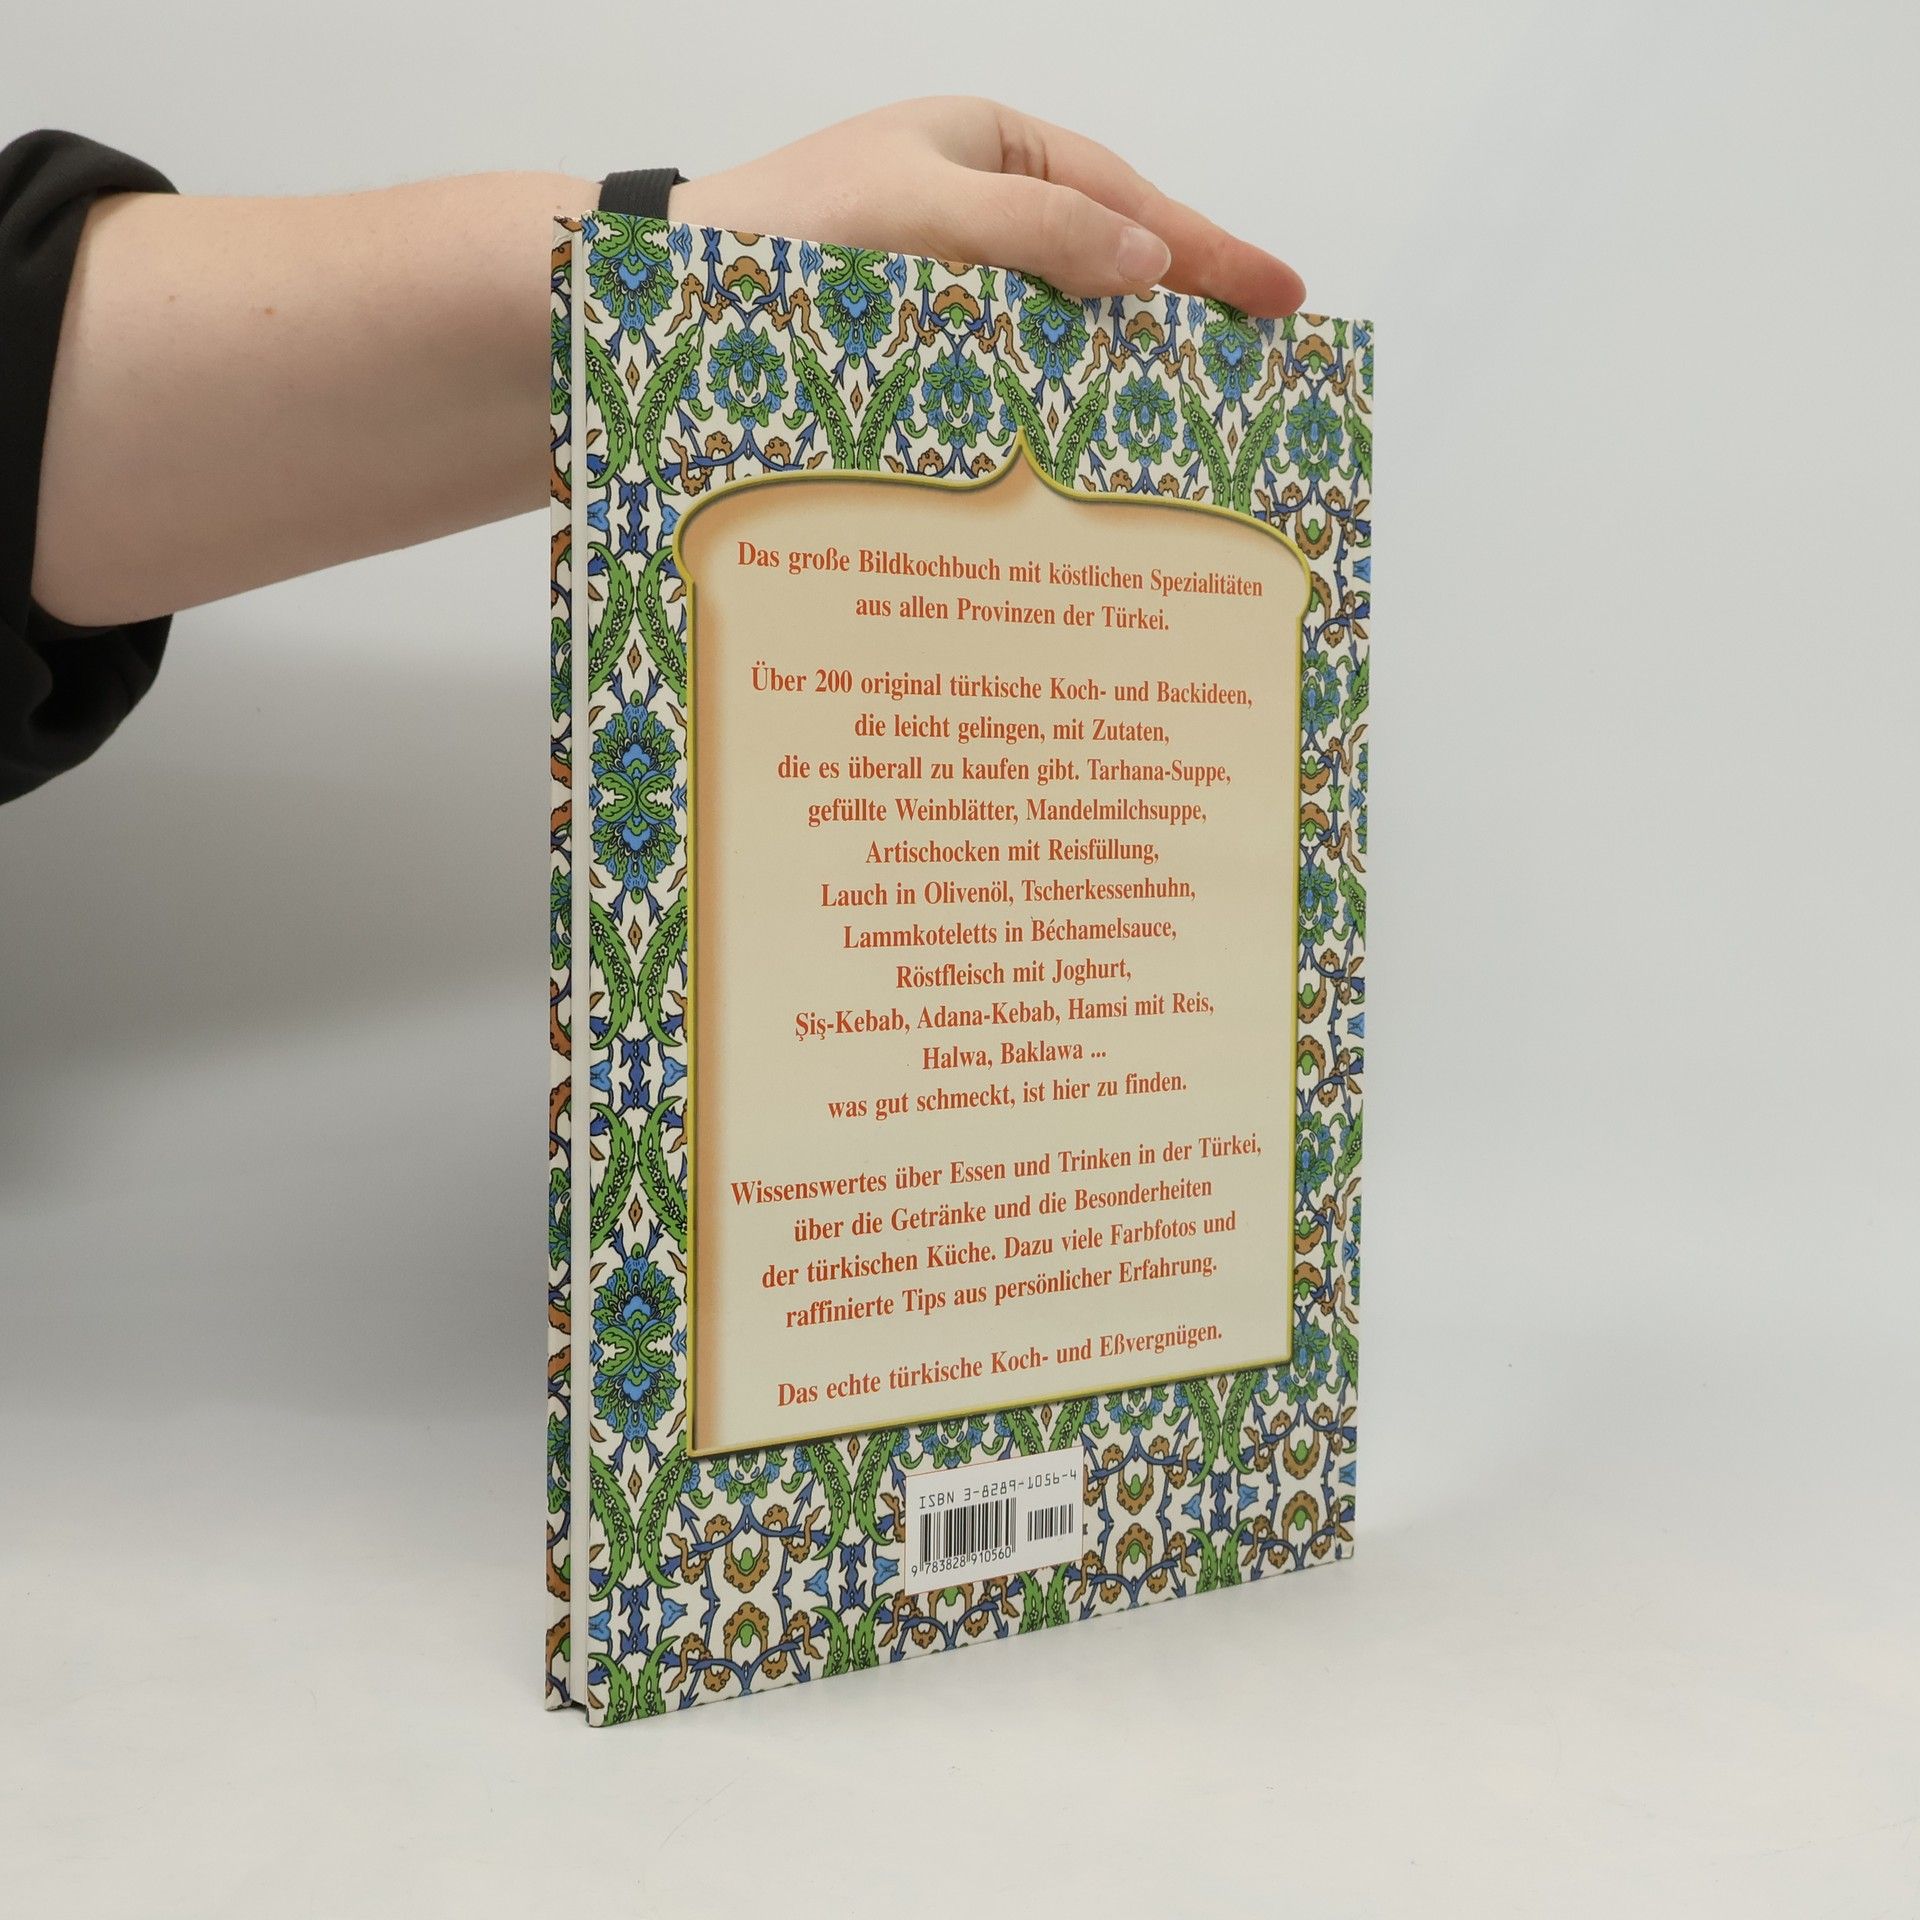 Das große Bildkochbuch mit köstlichen Spezialitäten
aus allen Provinzen der Türkei.
Über 200 original türkische Koch- und Backideen,
die leicht gelingen, mit Zutaten,
die es überall zu kaufen gibt. Tarhana-Suppe,
gefüllte Weinblätter, Mandelmilchsuppe,
Artischocken mit Reisfüllung,
Lauch in Olivenöl, Tscherkessenhuhn,
Lammkoteletts in Béchamelsauce,
Röstfleisch mit Joghurt,
Şiş-Kebab, Adana-Kebab, Hamsi mit Reis,
Halwa, Baklawa ...
was gut schmeckt, ist hier zu finden.
Wissenswertes über Essen und Trinken in der Türkei,
über die Getränke und die Besonderheiten
der türkischen Küche. Dazu viele Farbfotos und
raffinierte Tips aus persönlicher Erfahrung.
Das echte türkische Koch- und Eßvergnügen.
ISBN 3-8289-1056-4
9 783828 910560